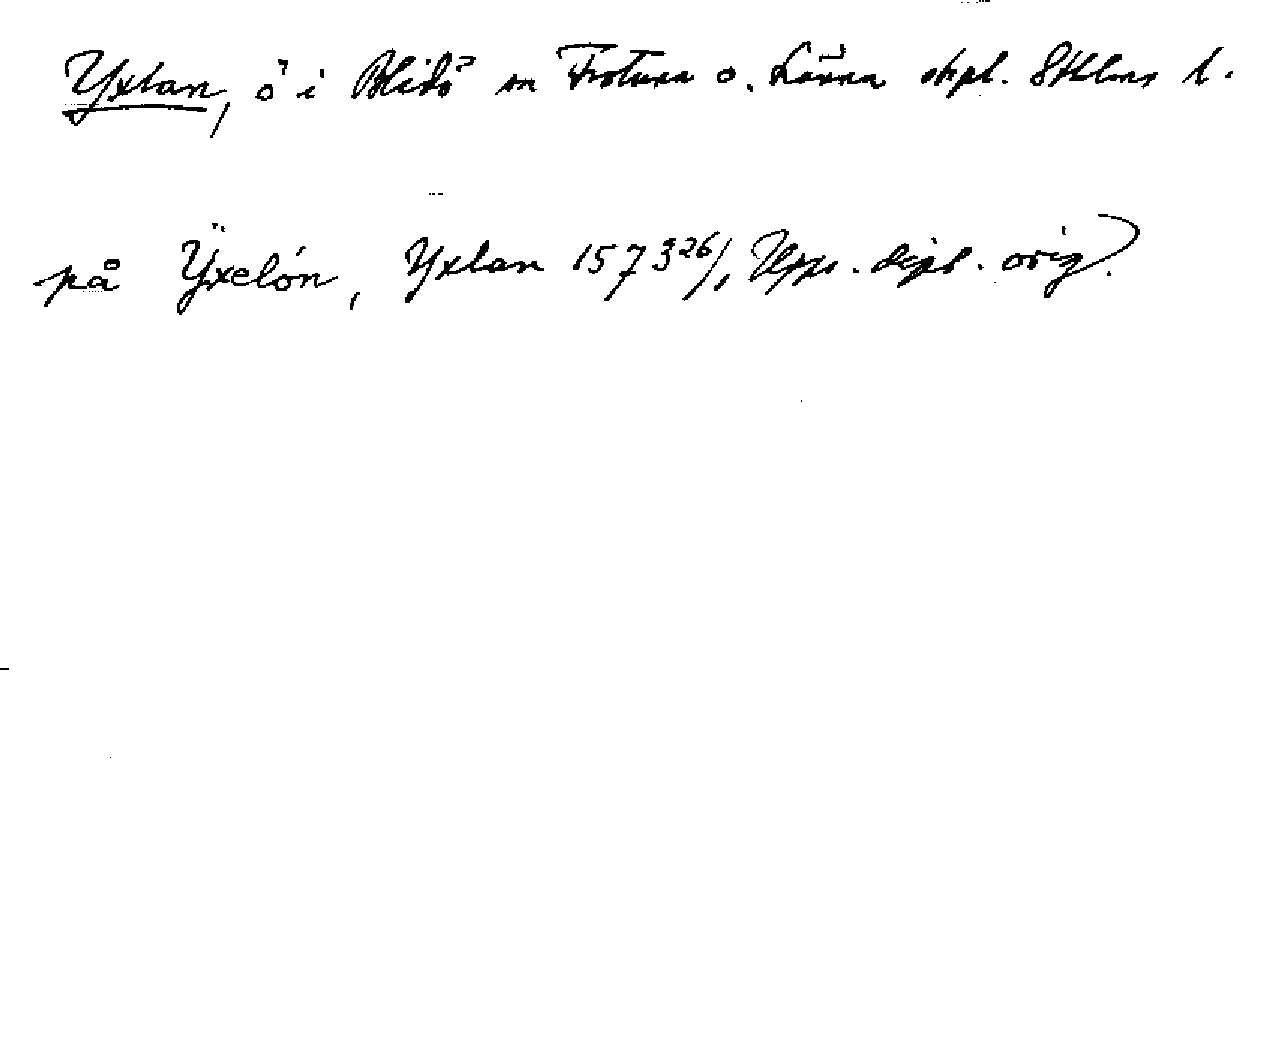 Yxlan, ö i Blidö sn Frötuna o. Länna skpl. Sthlms l.
på Ÿxelón, Yxlan 1573 26/1 Upps. dipl. orig.